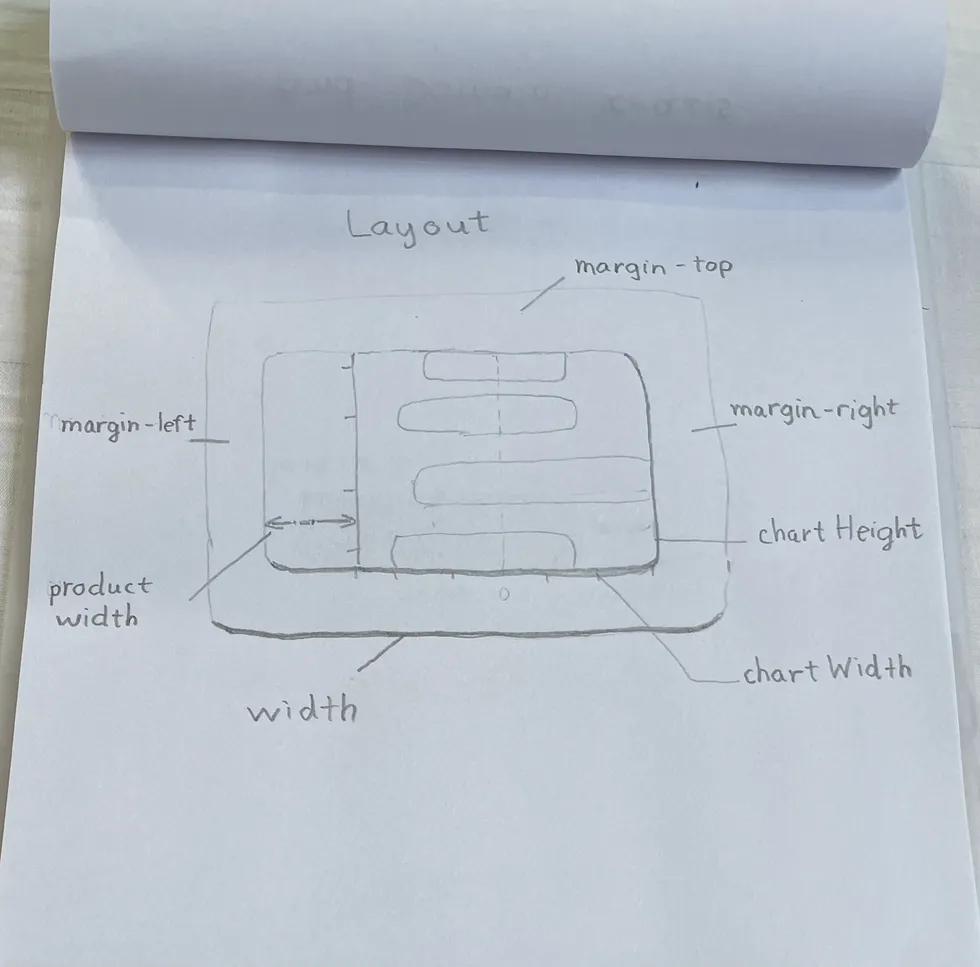 Layout
margin-top
margin-left
margin-right
chart Height
product
width
0
chart Width
width